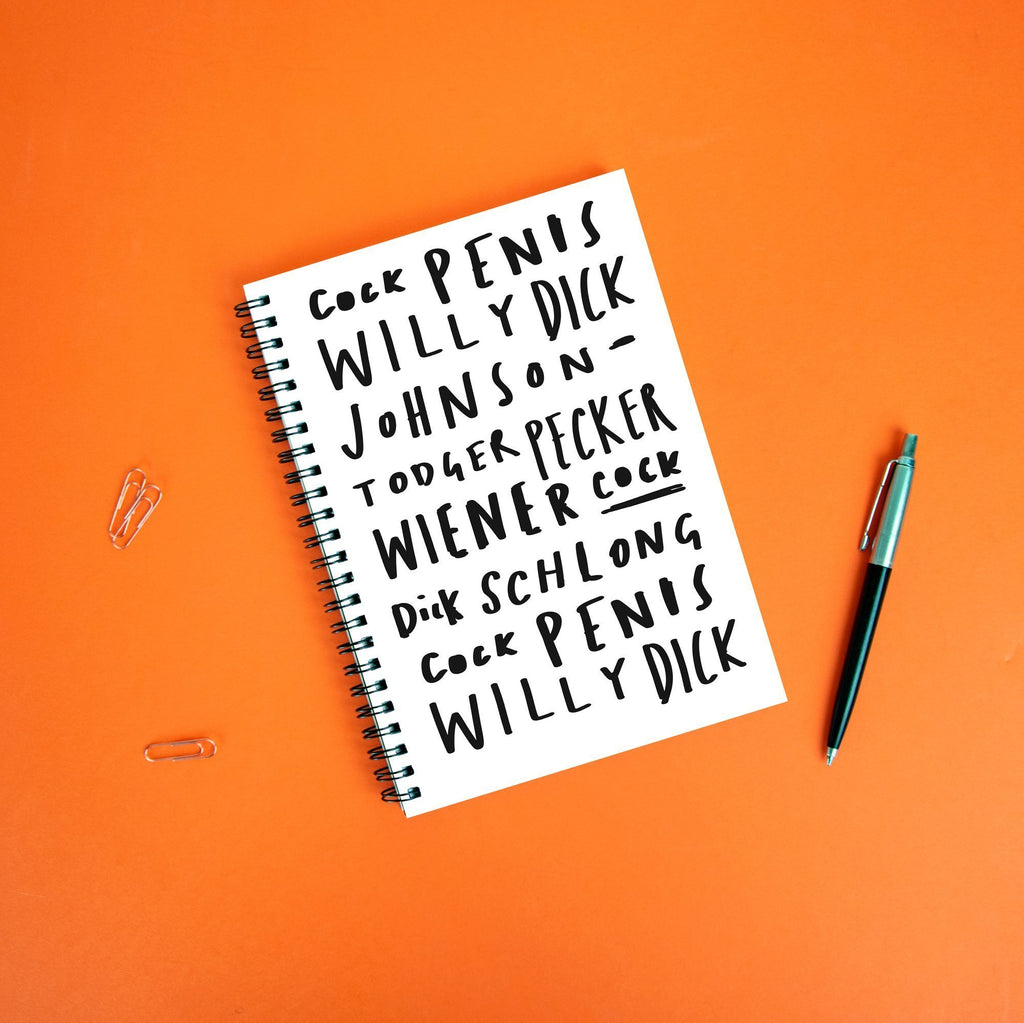 Cock PENIS
WILLY DICK
JOHNSON-
TODGER PECKER
WIENER COCK
Dick SCHLONG
Cock PENIS
WILLY DICK